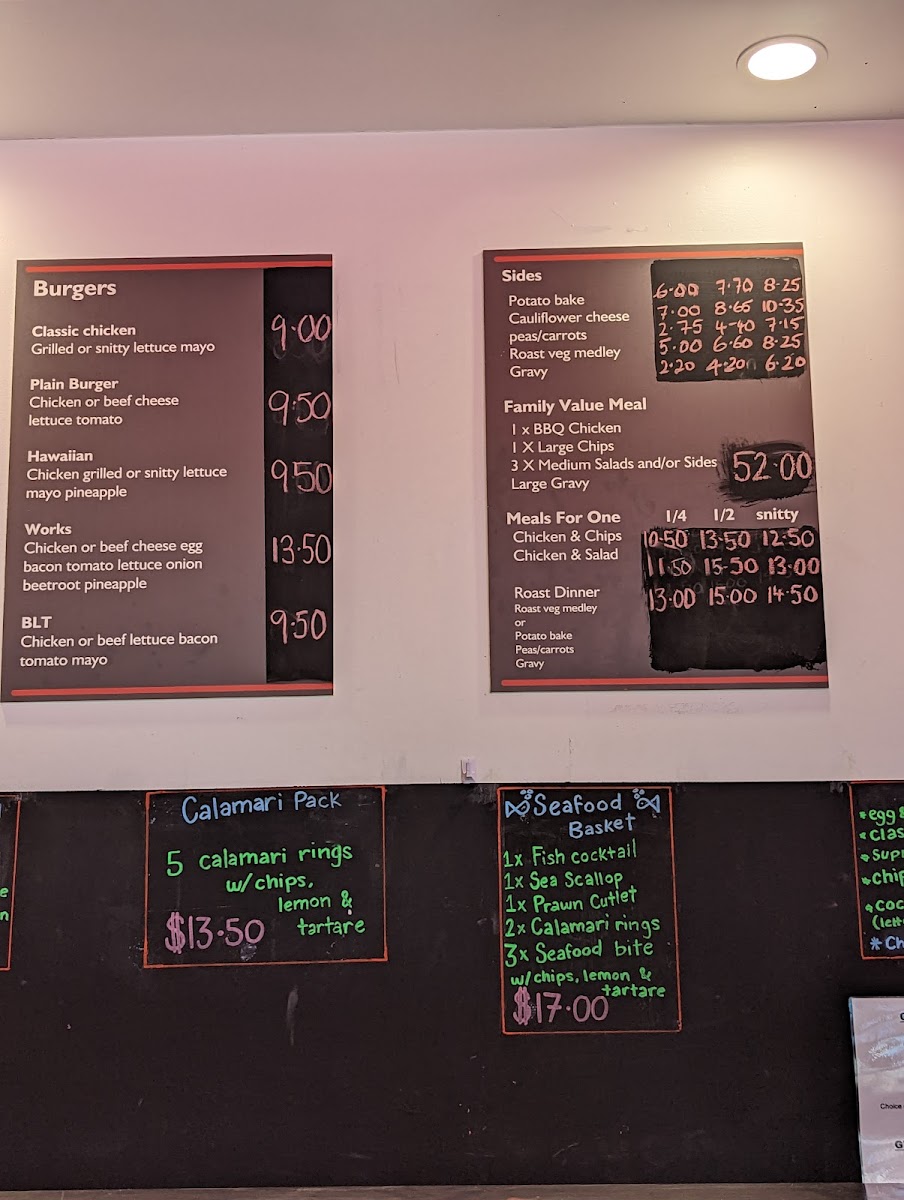 Burgers
Classic chicken
Grilled or snitty lettuce mayo
9.00
Plain Burger
Chicken or beef cheese
lettuce tomato
9.50
Hawaiian
Chicken grilled or snitty lettuce
mayo pineapple
9.50
Works
Chicken or beef cheese egg
bacon tomato lettuce onion
beetroot pineapple
13.50
BLT
Chicken or beef lettuce bacon
tomato mayo
9.50
Sides
Potato bake 6.00 7.70 8.25
Cauliflower cheese 7.00 8.65 10.35
peas/carrots 2.75 4.40 7.15
Roast veg medley 5.00 6.60 8.25
Gravy 2.20 4.20 6.20
Family Value Meal
1 x BBQ Chicken
1 X Large Chips
3 X Medium Salads and/or Sides 52.00
Large Gravy
Meals For One 1/4 1/2 snitty
Chicken & Chips 10.50 13.50 12.50
Chicken & Salad 11.50 15.50 13.00
Roast Dinner 13.00 15.00 14.50
Roast veg medley
or
Potato bake
Peas/carrots
Gravy
Calamari Pack
5 calamari rings
w/chips,
lemon &
tartare
$13.50
Seafood
Basket
1x Fish cocktail
1x Sea Scallop
1x Prawn Cutlet
2x Calamari rings
3x Seafood bite
w/chips, lemon &
tartare
$17.00
*egg
Choice